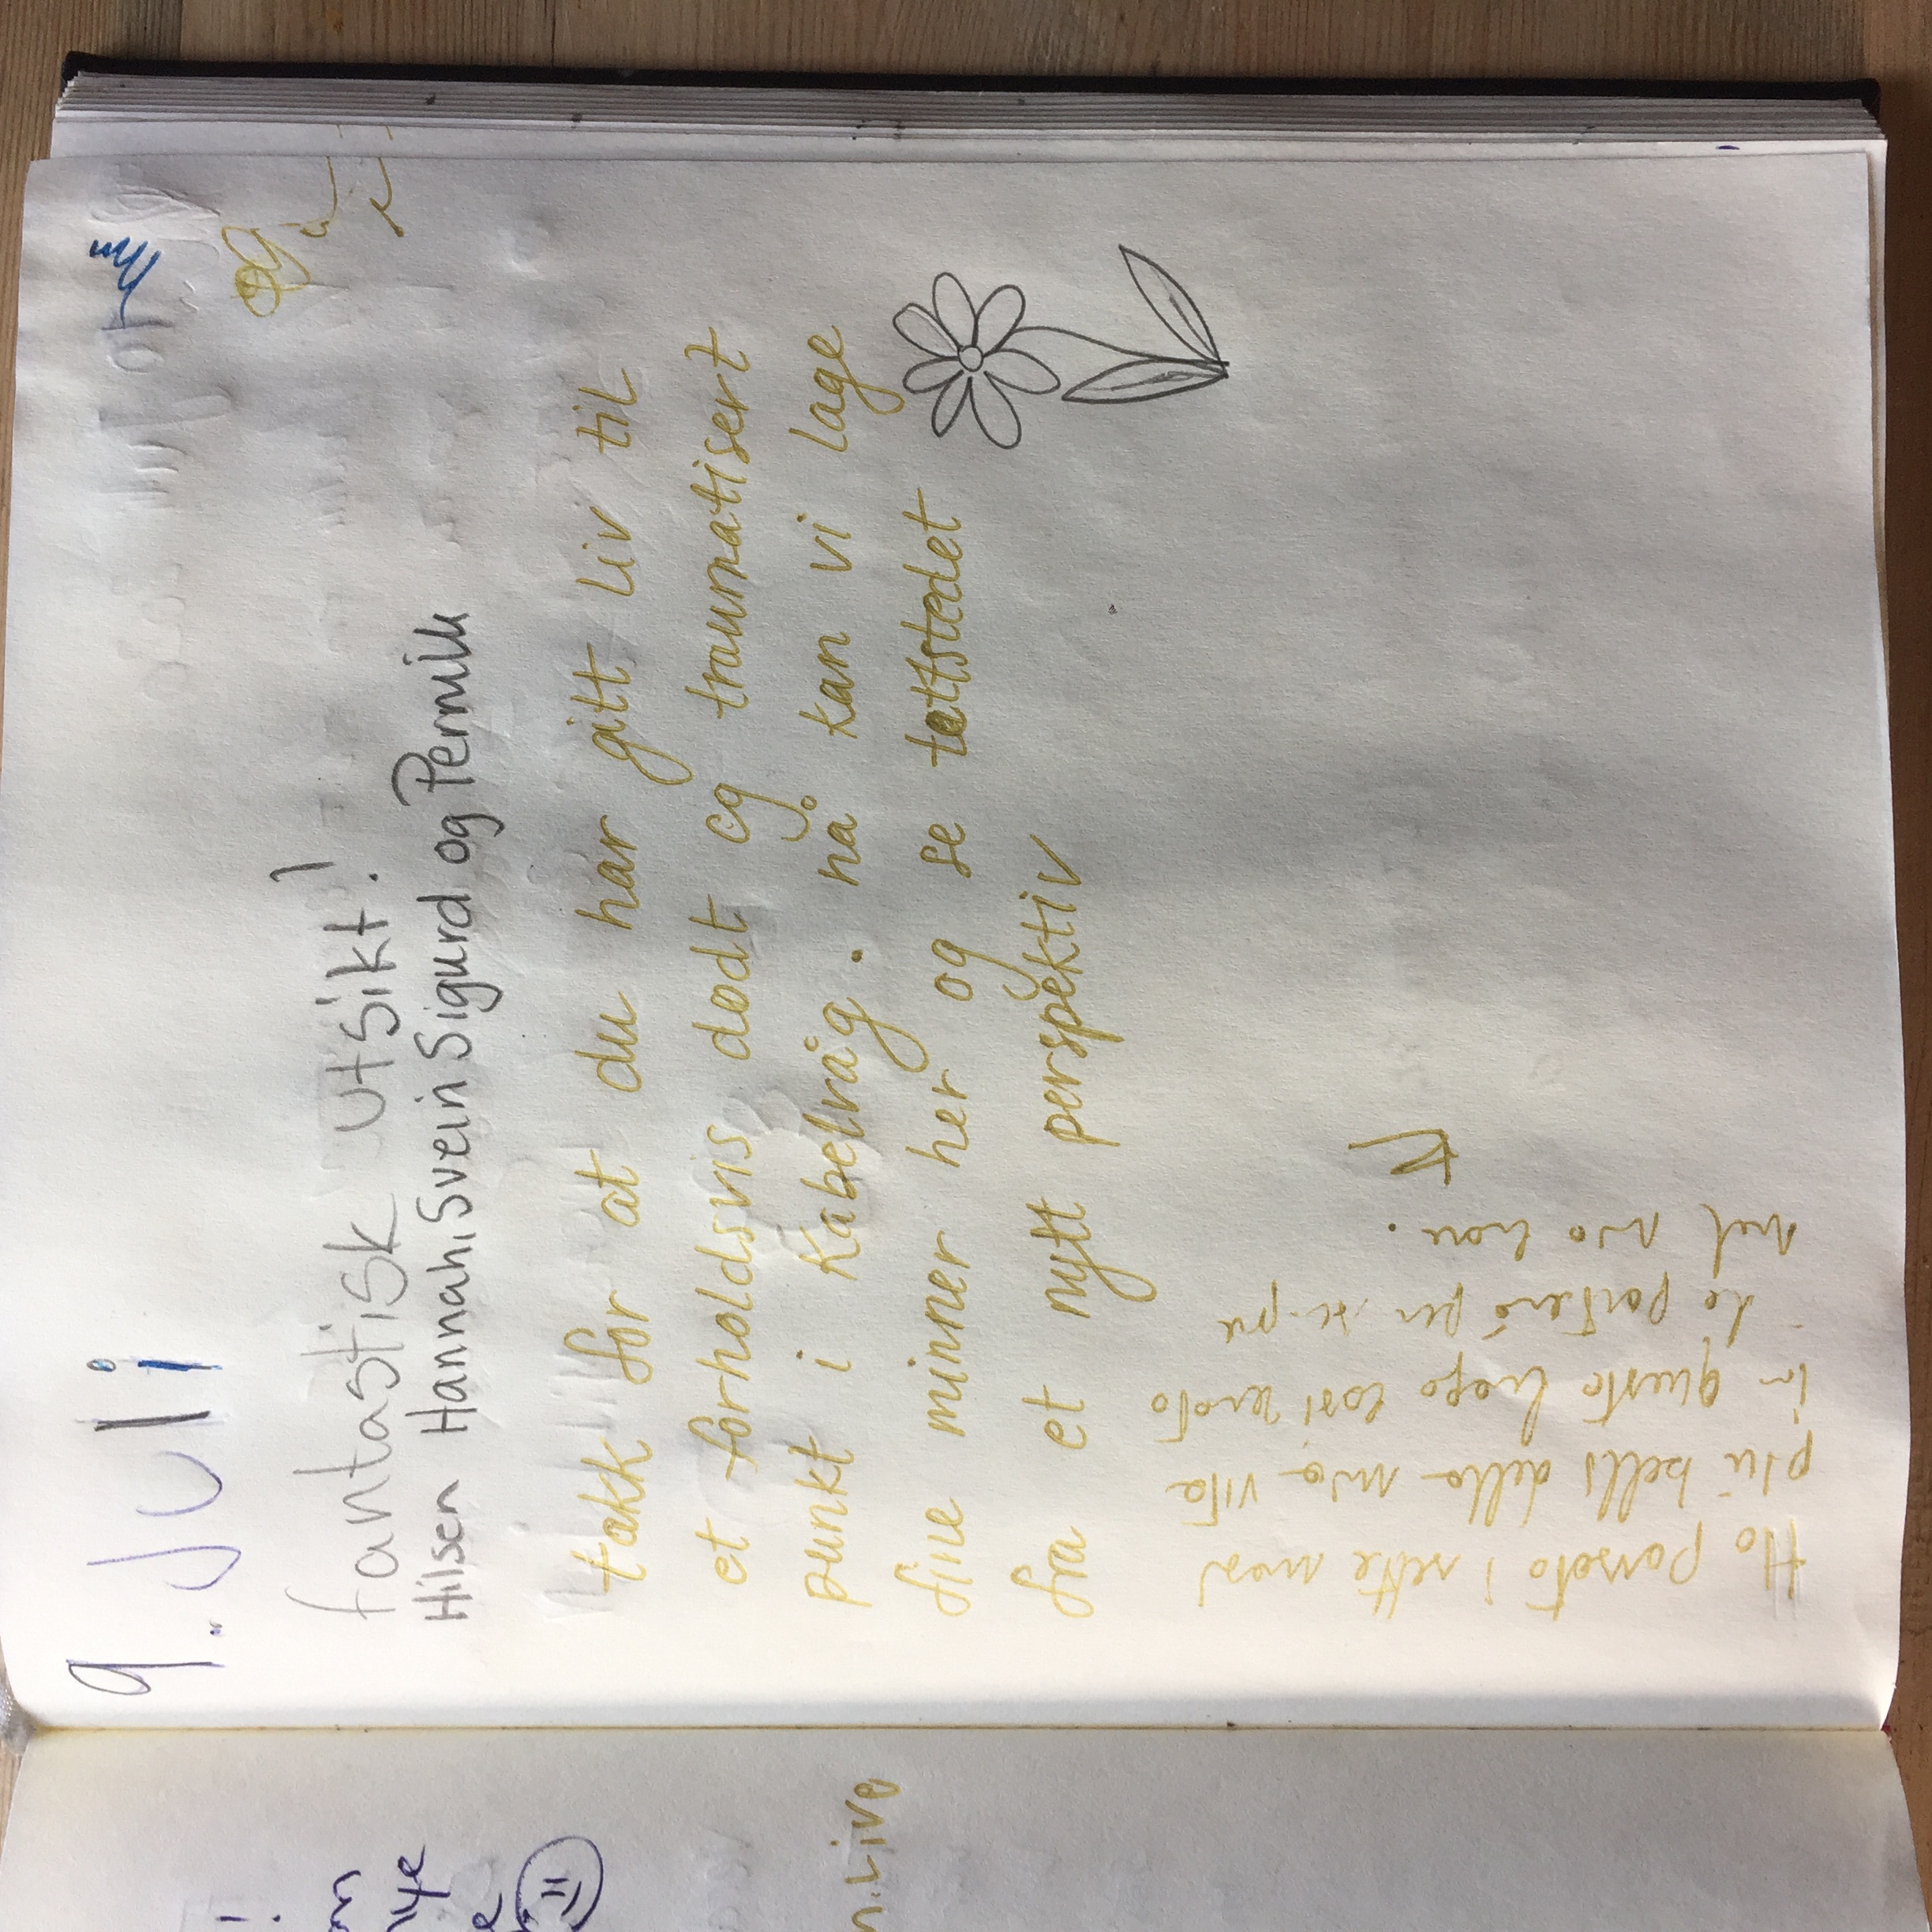 9. Juli
fantastisk utsikt!
Hilsen Hannah, Svein Sigurd og Pernille
takk for at du har gitt liv til
et forholdsvis dødt og traumatisert
punkt i Kabelvåg. nå kan vi lage
fine minner her og se tettstedet
fra et nytt perspektiv
Ho passato i sette mesi
più belli della mia vita
in questo luogo così
Lo porterò per sempre
nel mio
n.Live